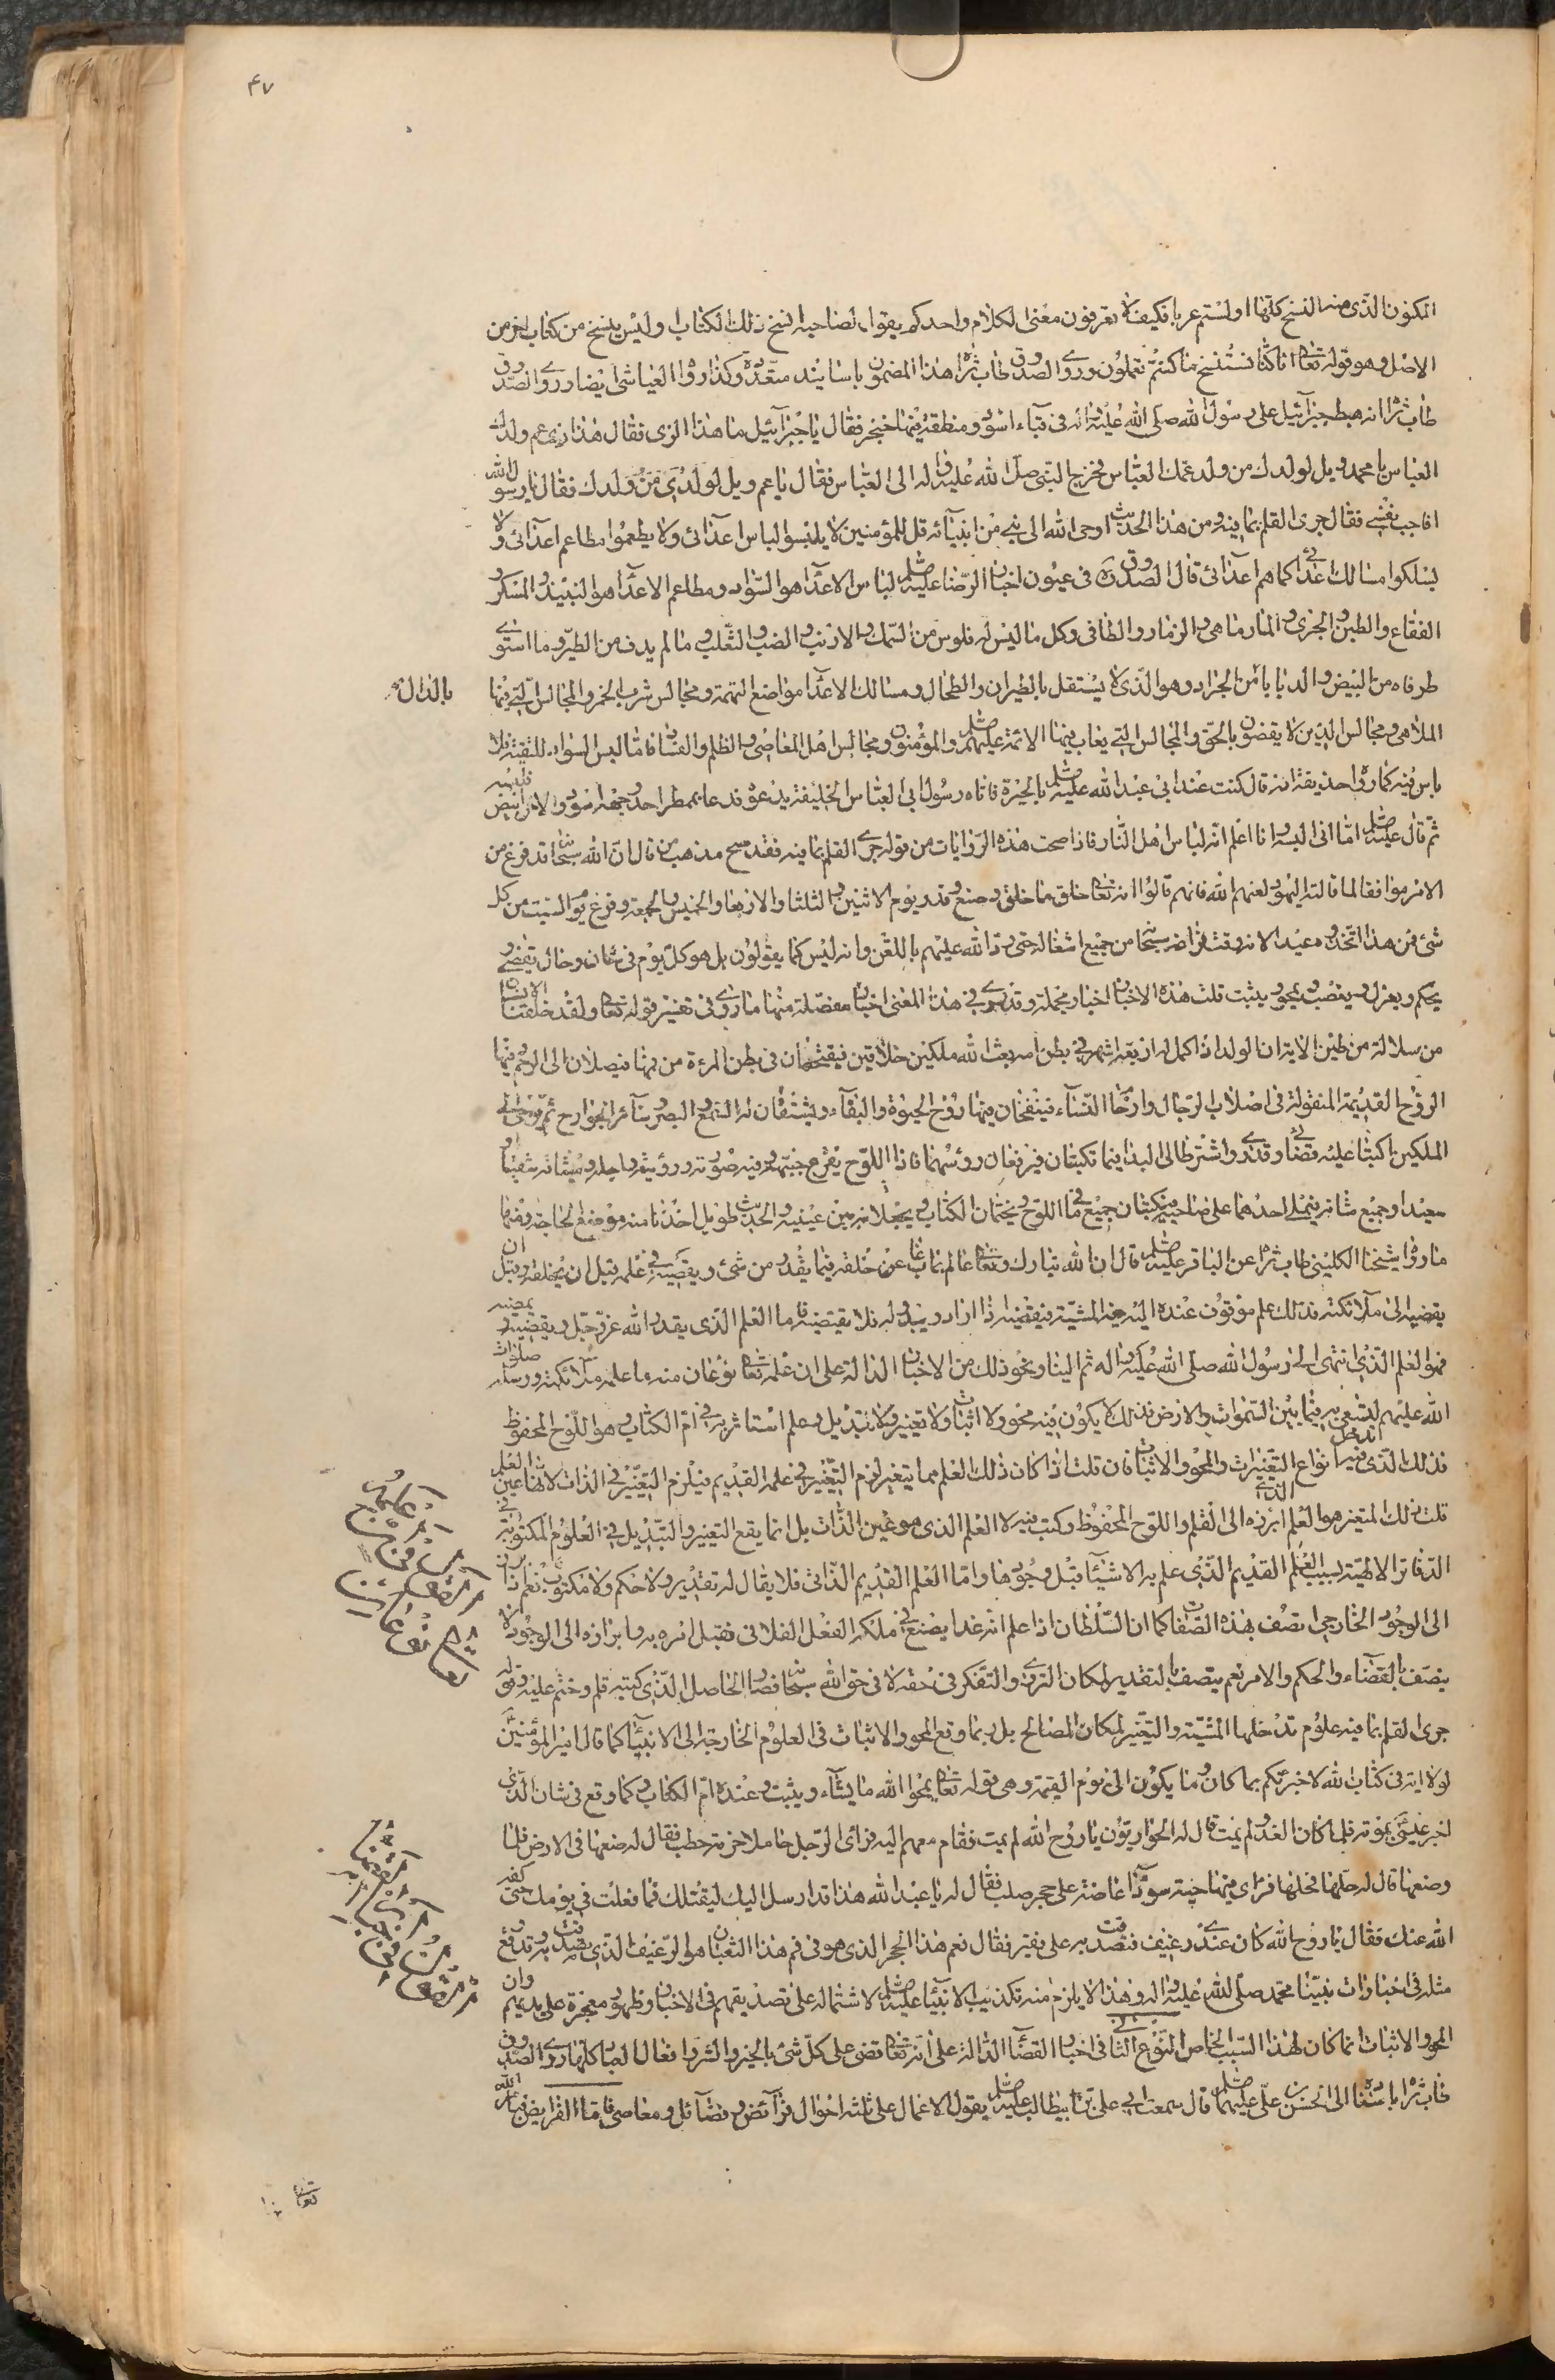 ٤٧
المكنون الذى منه النسخ كلها اولستم عربا فكيف لا تعرفون معنى الكلام واحدكم يقول لصاحبه انسخ ذلك الكتاب اوليس ينسخ من كتاب اخر من
الاصل وهو قوله تعا انا كنا نستنسخ ما كنتم تعملون وروى الصدوق طاب ثراه هذا المضمون باسانيد متعددة وكذا رواه العياشى ايضا وروى الصدوق
طاب ثراه انه هبط جبرائيل على رسول الله صلى الله عليه واله فى قباء اسود ومنطقة فيها خنجر فقال يا جبرائيل ما هذا الزى فقال هذا زى عم ولد
العباس يا محمد ويل لولدك من ولد عمك العباس فخرج النبى صلى الله عليه واله الى العباس فقال يا عم ويل لولدى من ولدك فقال يا رسول الله
افاجب نفسى فقال جرى القلم بما فيه ومن هذا الحديث اوحى الله الى نبى من انبيائه قل للمؤمنين لا يلبسوا لباس اعدائى ولا يطعموا مطاعم اعدائى ولا
يسلكوا مسالك اعدائى كما هم اعدائى قال الصدوق ره فى عيون اخبار الرضا عليه السلم لباس الاعداء هو السواد ومطاعم الاعداء هو النبيذ والمسكر و
الفقاع والطين والجرى والمارماهى والزمار والطافى وكل ما ليس له فلوس من السمك والارنب والضب والثعلب وما لم يدف من الطير وما استوى
طرفاه من البيض والدبا بالدال من الجراد وهو الذى لا يستقل بالطيران والطحال ومسالك الاعداء مواضع التهمة ومجالس شرب الخمر والمجالس التى فيها
بالدال
الملاهى ومجالس الذين لا يقضون بالحق والمجالس التى يعاب فيها الائمة عليهم السلم والمؤمنون ومجالس اهل المعاصى والظلم والفساد فاما لبس السواد للتقية فلا
باس فيه كما رواه حذيفة انه قال كنت عند ابى عبد الله عليه السلم بالحيرة فاتاه رسول ابى العباس الخليفة يدعوه فدعا بممطر احد وجهيه اسود والاخر ابيض فلبسه
ثم قال عليه السلم اما انى البسه وانا اعلم انه لباس اهل النار فاذا صحت هذه الروايات من قوله جرى القلم بما فيه فقد صح مذهب من قال ان الله سبحانه قد فرغ من
الامر موافقا لما قالته اليهود لعنهم الله فانهم قالوا انه تعا خلق ما خلق وصنع وقدر يوم الاثنين والثلثا والاربعا والخميس والجمعة وفرغ يوم السبت من كل
شئ فمن هذا اتخذوه عيدا لانه وقت فراغه سبحانه من جميع اشغاله حتى رد الله عليهم باللعن وانه ليس كما يقولون بل هو كل يوم فى شان وحال يقضى و
يحكم ويعزل وينصب ويمحو ويثبت قلت هذه الاخبار اخبار مجملة وقد روى فى هذا المعنى اخبار مفصلة منها ما روى فى تفسير قوله تعا ولقد خلقنا الانسان
من سلالة من طين الاية ان الولد اذا كمل له اربعة اشهر فى بطن امه بعث الله ملكين خلاقين فيقتحمان فى بطن المرءة من فمها فيصلان الى الرحم وفيها
الروح القديمة المنقولة فى اصلاب الرجال وارحام النساء فينفخان فيها روح الحيوة والبقاء ويشقان له السمع والبصر وسائر الجوارح ثم يوحى الى
الملكين اكتبا عليه قضائى وقدرى واشترطا لى البداء فيما تكتبان فيرفعان رؤسهما فاذا اللوح يقرع جبهته وفيه صورته ورؤيته واجله وميثاقه شقيا او
سعيدا وجميع شانه فيملى احدهما على صاحبه فيكتبان جميع ما فى اللوح ويختمان الكتاب ويجعلانه بين عينيه والحديث طويل اخذنا منه موضع الحاجة ومنها
ما رواه شيخنا الكلينى طاب ثراه عن الباقر عليه السلم قال ان الله تبارك وتعا عالم بما غاب عن خلقه فيما يقدر من شئ ويقضيه فى علمه قبل ان يخلقه وقبل ان
يقضيه الى ملائكته فذلك علم موقوف عنده اليه فيه المشية فيقضيه اذا اراد ويبدو له فلا يمضيه فاما العلم الذى يقدره الله عز وجل ويقضيه ويمضيه
فهو العلم الذى انتهى الى رسول الله صلى الله عليه واله ثم الينا ونحو ذلك من الاخبار الدالة على ان علمه تعا نوعان منه ما علمه ملائكته ورسله صلوات
الله عليهم ليسعى به فيما بين السموات والارض فذلك لا يكون فيه محو ولا اثبات ولا تغيير ولا تبديل وعلم استاثر به فى ام الكتاب وهو اللوح المحفوظ
فذلك الذى فيه تدخل انواع التغيرات والمحو والاثبات فان قلت اذا كان ذلك العلم مما يتغير لزم التغير فى علمه القديم فيلزم التغير فى الذات لانها عين العلم
قلت ذلك المتغير هو العلم الذى ابرزه الى القلم واللوح المحفوظ وكتب فيه لا العلم الذى هو عين الذات بل انما يقع التغيير والتبديل فى العلوم المكتوبة فى
الدفاتر الالهية بسبب العلم القديم الذى علم به الاشياء قبل وجودها واما العلم القديم الذاتى فلا يقال له تقدير ولا حكم ولا مكتوب نعم اذا برز
الى الوجود الخارجى اتصف بهذه الصفات كما ان السلطان اذا علم انه غدا يصنع فى ملكه الفعل الفلانى فقبل امره به وابرازه الى الوجود لا
يتصف بالقضاء والحكم والامر نعم يتصف بالتقدير لمكان التردد والتفكر فى حقه لا فى حق الله سبحانه فصار الحاصل الذى كتبه قلم وختم عليه وقوله
جرى القلم بما فيه علوم تدخلها المشية والتغير لمكان المصالح بل ربما وقع المحو والاثبات فى العلوم الخارجة الى الانبياء كما قال امير المؤمنين
لولا اية فى كتاب الله لاخبرتكم بما كان وما يكون الى يوم القيمة وهى قوله تعا يمحوا الله ما يشاء ويثبت وعنده ام الكتاب وكما وقع فى شان الذى
اخبر عيسى بموته فلما كان الغد ولم يمت قال له الحواريون يا روح الله لم يمت فقام معهم اليه فراى الرجل حاملا حزمة حطب فقال له ضعها فى الارض فلما
وضعها قال له حلها فحلها فراى فيها حية سوداء عاضة على حجر صلب فقال له يا عبد الله هذا قد ارسل اليك ليقتلك فما فعلت فى يومك حتى كفه
الله عنك فقال يا روح الله كان عندى رغيف فتصدقت به على فقير فقال نعم هذا الحجر الذى هو فى فم هذا الثعبان هو الرغيف الذى تصدقت به وقد وقع
مثله فى اخبارات نبينا محمد صلى الله عليه واله وهذا لا يلزم منه تكذيب الانبياء عليهم السلم لاشتماله على تصديقهم فى الاخبار وظهور معجزة على يديهم وان
المحو والاثبات انما كان لهذا السبب الخاص النوع الثانى فى اخبار القضاء الدالة على انه تعا قضى على كل شئ بالخير والشر وافعال العباد كلها روى الصدوق
طاب ثراه باسناده الى الحسين بن على عليهما السلم قال سمعت ابى على بن ابيطالب عليه السلم يقول الاعمال على ثلثة احوال فرائض وفضائل ومعاصى فاما الفرائض فبامر الله